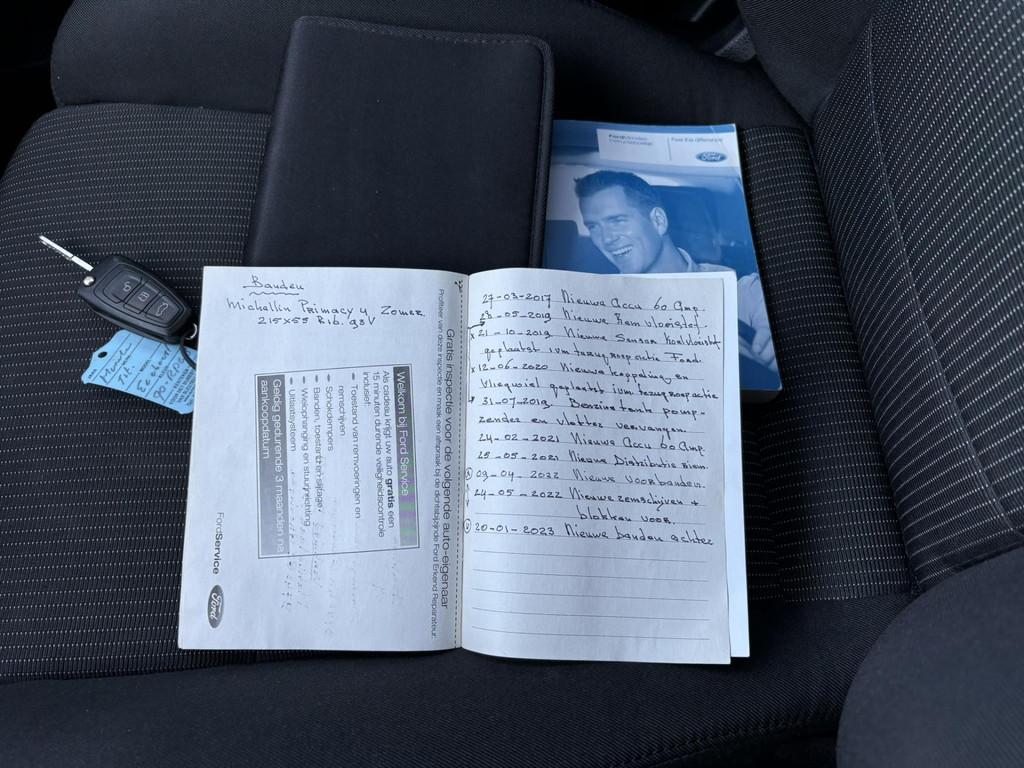 Feel the difference
Ford
Banden
Michellin Primacy 4 Zomer
215x55 R16. 93V
Gratis inspectie voor de volgende auto-eigenaar
Profiteer van deze inspectie en maak een afspraak bij de dichtstbijzijnde Ford Erkend Reparateur.
Welkom bij Ford Service
Als cadeau krijgt uw auto gratis een
15 minuten durende veiligheidscontrole
inclusief:
• Toestand van remvoeringen en
remschijven
• Schokdempers
• Banden, toestand en slijtage
• Wielophanging en stuurinrichting
• Uitlaatsysteem
Geldig gedurende 3 maanden na
aankoopdatum
FordService
Ford
27-03-2017 Nieuwe Accu 60 Amp.
23-05-2019 Nieuwe Remvloeistof.
x 21-10-2019 Nieuwe Sensor Koelvloeistof
geplaatst ivm terugroepactie Ford.
x 12-06-2020 Nieuwe koppeling en
Vliegwiel geplaatst ivm terugroepactie
31-07-2019 Benzinetank pomp
zender en vlotter vervangen.
24-02-2021 Nieuwe Accu 60 Amp
25-05-2021 Nieuwe Distributie Riem.
09-04-2022 Nieuwe voorbanden.
24-05-2022 Nieuwe remschijven +
blokken voor.
20-01-2023 Nieuwe banden achter